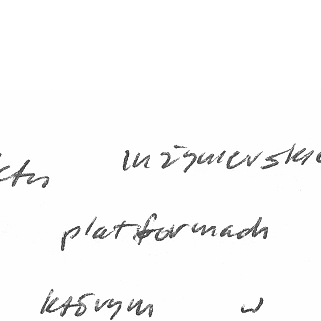 inżyniersk
platformach
którym w